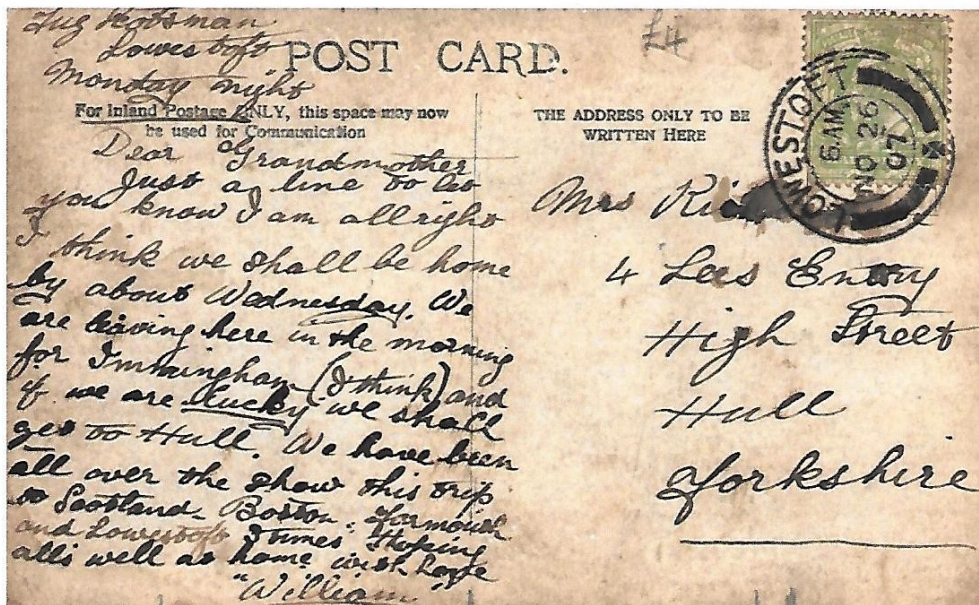 Tug Scotsman
Lowestoft
Monday night
£4
POST CARD.
For Inland Postage ONLY, this space may now
be used for Communication
THE ADDRESS ONLY TO BE
WRITTEN HERE
LOWESTOFT
6. AM
NO 26
07
Dear Grandmother
Just a line to let
you know I am allright
I think we shall be home
by about Wednesday. We
are leaving here in the morning
for Immingham (I think) and
if we are lucky we shall
get to Hull. We have been
all over the show this trip
to Scotland Boston Yarmouth
and Lowestoft times Hoping
alls well at home with Love
"William"
Mrs
4 Lees Entry
High Street
Hull
Yorkshire